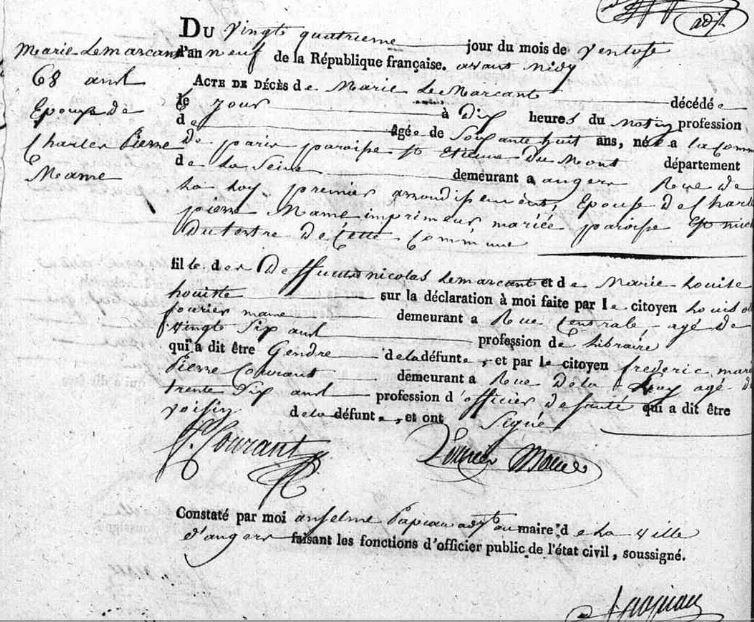 adjt
Marie Lemarcant
68 ans
Epouse de
Charles Pierre
Mame
DU vingt quatrieme jour du mois de ventose
l'an neuf de la République française. avant midy
ACTE DE DÉCÈS de Marie Le Marcant décédée
le jour à Dix heures du Matin profession
de agée de soixante huit ans, née a la Comm
De paris paroisse st Etienne Du Mont département
de La Seine demeurant a angers Rue de
La Loy premier arrondissement, Epouse de Charle
pierre Mame imprimeur mariée paroisse St mich
Du tertre De Cette Commune
fille des Deffunts nicolas Lemarcant et de Marie Louise
Louiste sur la déclaration à moi faite par le citoyen Louis
fourier mame demeurant a Rue Centrale, agé de
vingt Six ans profession de Libraire
qui a dit être Gendre de la défunte, et par le citoyen frederic
Pierre Courant demeurant a Rue de la Loy agé de
trente Six ans profession d'officier de santé qui a dit être
voisin de la défunte, et ont Signé
Courant
fourier Mame
Constaté par moi anselme Papiau adjt au maire de la ville
d'angers faisant les fonctions d'officier public de l'état civil, soussigné.
Papiau